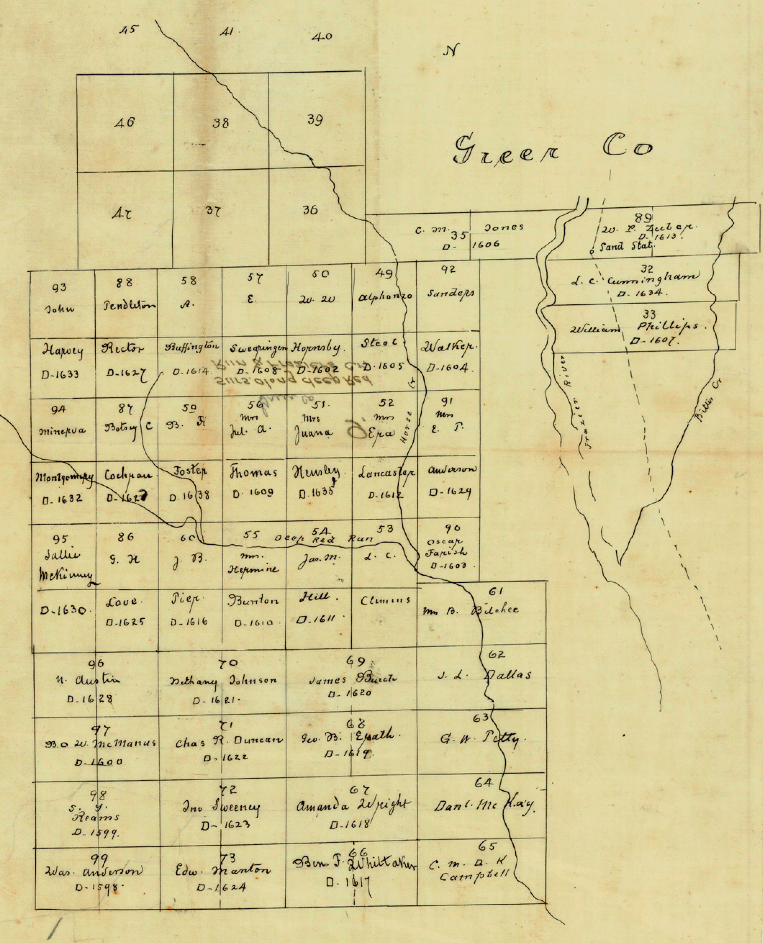 45 41 40
N
46 38 39
Greer Co
47 37 36
C. M. 35 Jones
D- 1606
89
W. P.
D-1613.
Sand Stat.
32
L. C. Cunningham
D-1634.
33
William Phillips.
D-1607.
93 88 58 57 50 49 92
John Pendleton A. E. W. W. Alphonzo Sanders
Harvey Rector Buffington Swearingen Hornsby. Steel Walker
D-1633 D-1627 D-1614 D-1608 D-1602 D-1605 D-1604.
Surs Along deep Red
Run &
94 87 59 56 51. 52 91
Minerva Betsy C B. F. Mrs Jul. A. Mrs Juana Mrs Epa Mrs E. P.
Horse Cr
Montgomery Cochran Foster Thomas Hensley Lancaster Anderson
D-1632 D-162 D-1638 D-1609 D-1635 D-1612 D-1629
95 86 60 55 54 53 90
Deep Red Run
Sallie McKinney G. H J B. Mrs. Hermine Jas. M. L. C. Oscar Farish
D-1603
D-1630. Love. Pier. Bunton Hill. Climins
D-1625 D-1616 D-1610 D-1611
61
Mrs B. Bilchee
96 70 69 62
N. Austin Bethany Johnson James Burch J. L. Dallas
D-1628 D-1621. D-1620
97 71 68 63
B. O. W. McManus Chas R. Duncan Geo. B. Erath. G. W. Petty.
D-1600 D-1622 D-1619
98 72 67 64
S. Y. Reams Jno Sweeney Amanda Wright Danl. McKay.
D-1599. D-1623 D-1618
99 73 66 65
Was. Anderson Edw. Manton Ben F. Whittaker C. M. D. K Campbell
D-1598. D-1624 D-1617
River
Cr